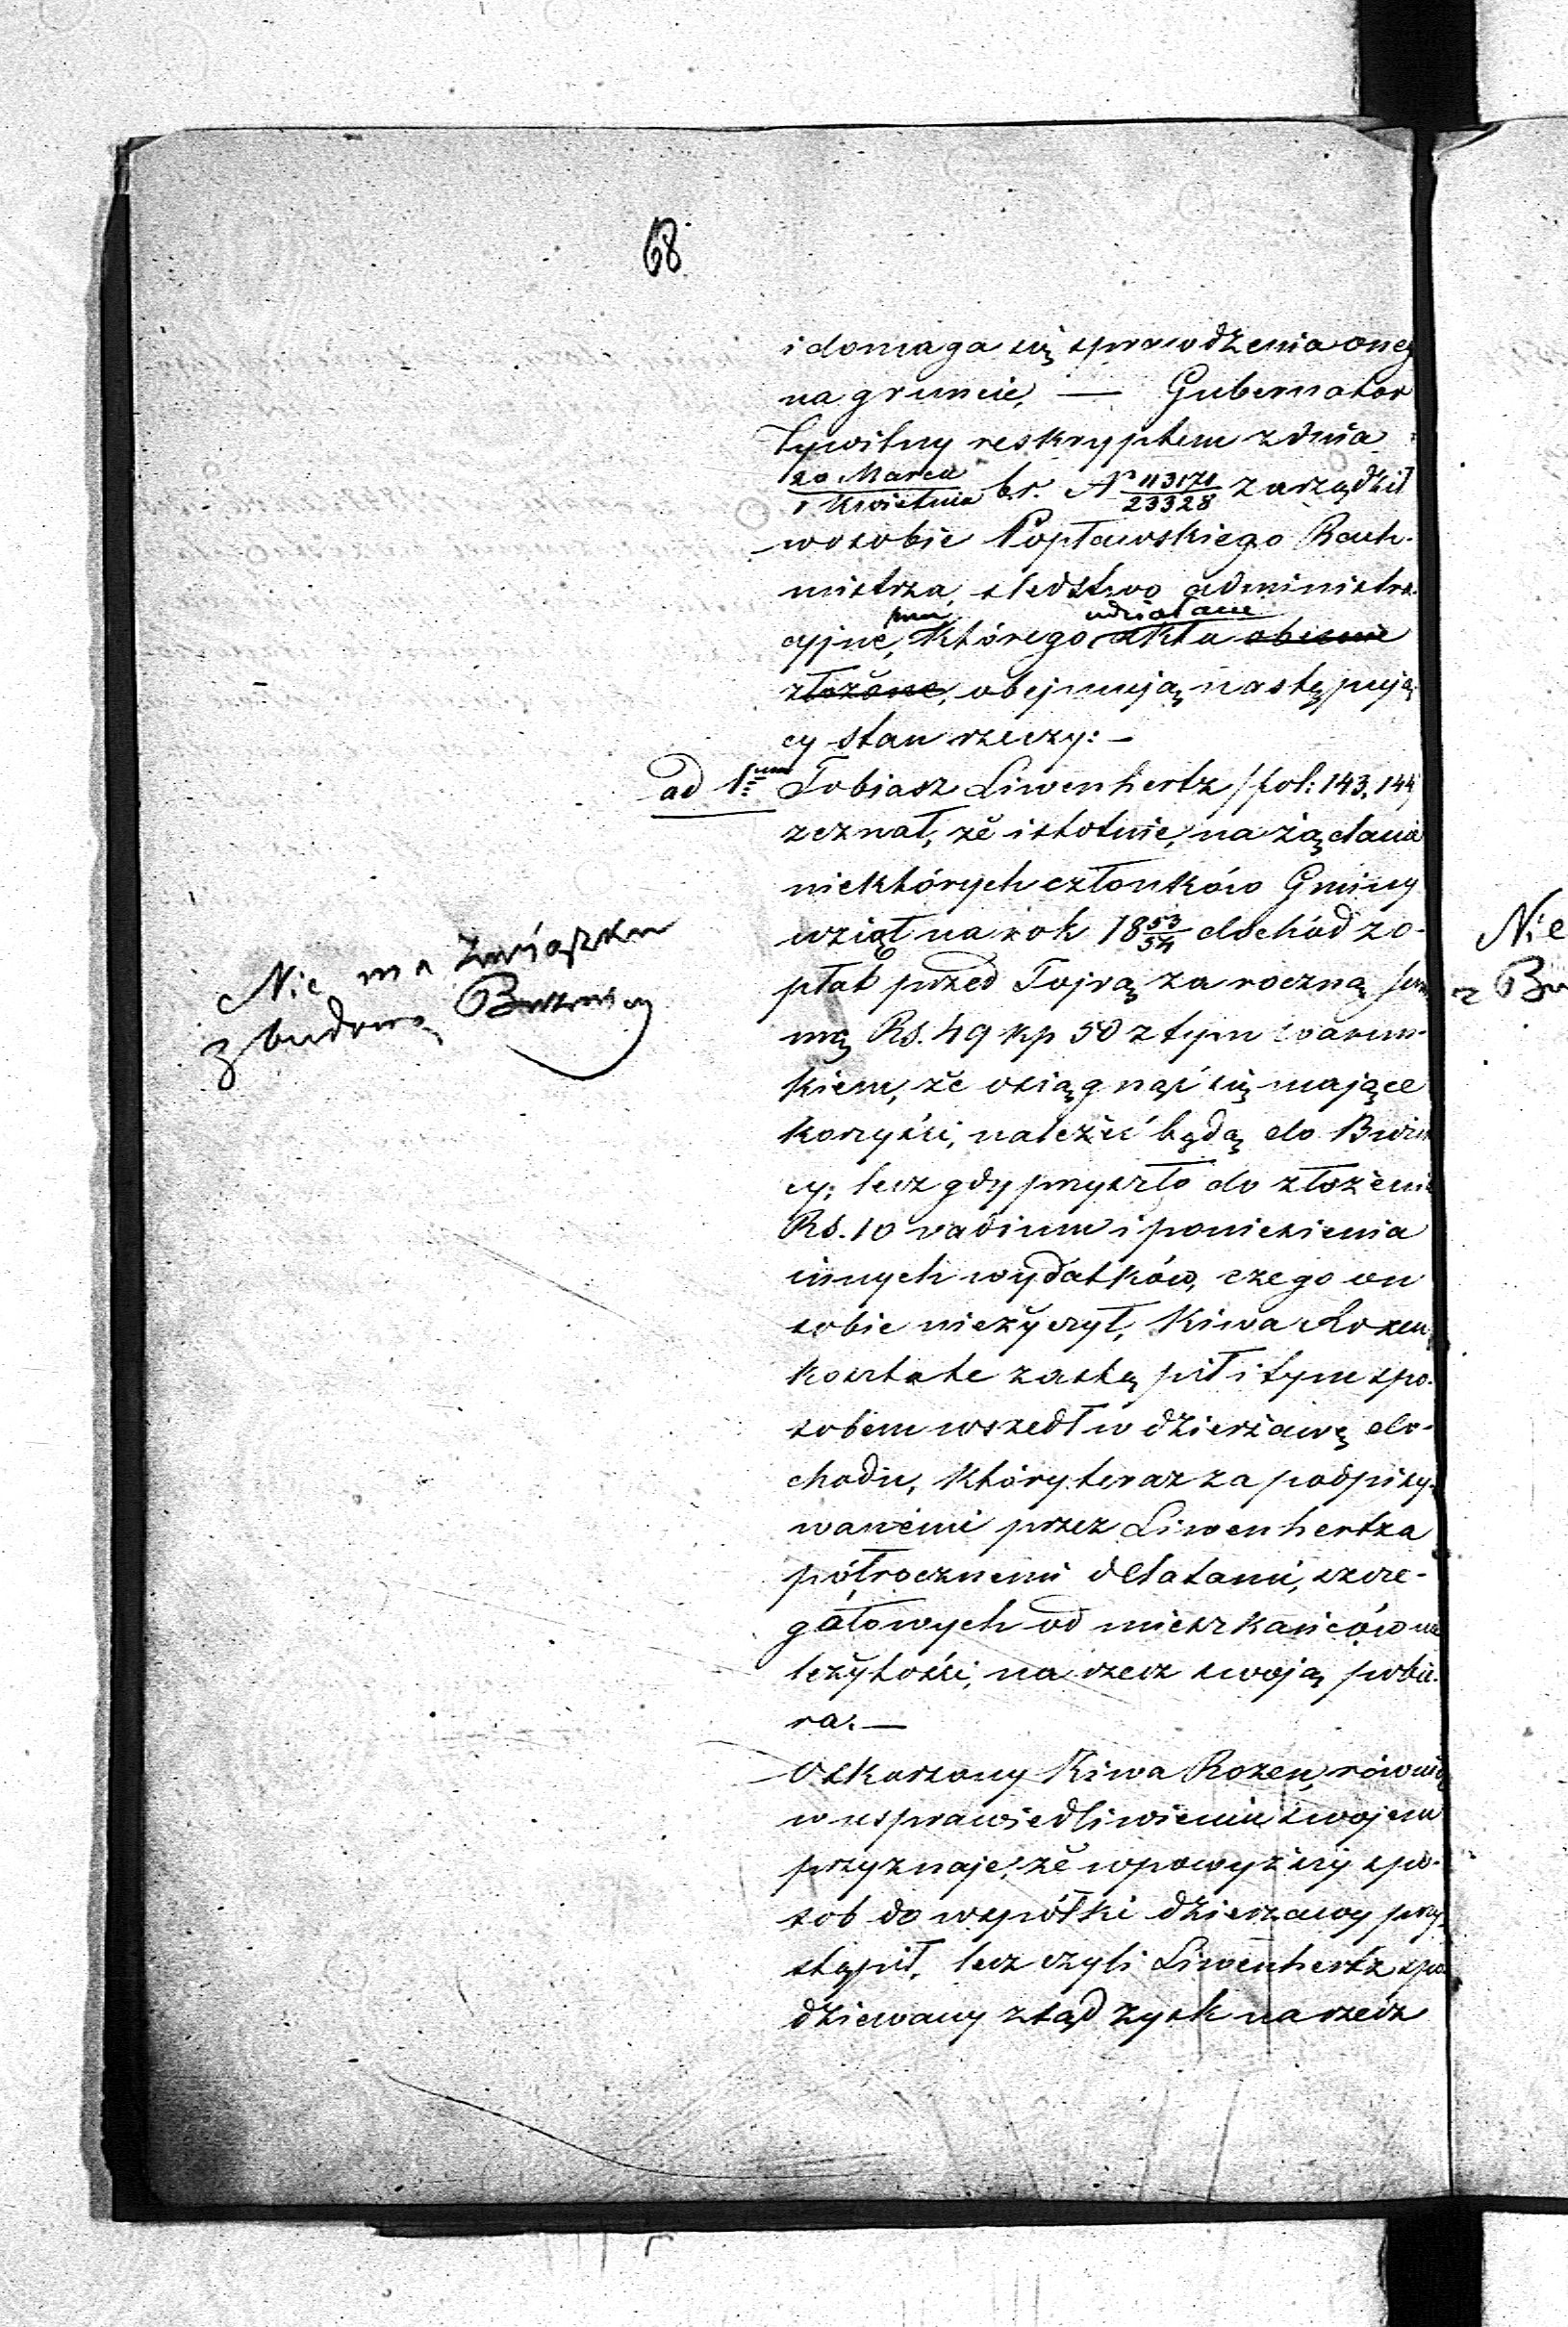 68
i domaga się sprawdzenia onej
na gruncie, — Gubernator
Cywilny reskryptem z dnia
20 Marca / 1 Kwietnia b.r. Nr 43171/23328 zarządził
w osobie Popławskiego Rach-
mistrza, sledztwo administra-
cyjne, którego akta obecnie
udziałane
złożone, obejmują następują
cy stan rzeczy: —
ad 1um Tobiasz Liwenhertz /fol: 143, 144
zeznał, że istotnie, na żądania
niektórych członków Gminy
wziął na rok 1853/54 dochód z o-
płat przed Tojrą za roczną sum
mę Rs. 49 kp 50 z tym warun-
kiem, że osiągnąć się mające
korzyści, należeć będą do Bużn
cy; lecz gdy przyszło do złożenia
Rs. 10 vadium i poniesienia
innych wydatków, czego on
sobie nieżyczył, Kiwa Rozen,
koszta te zastąpił i tym spo-
sobem wszedł w dzierżawę do-
chodu, który teraz za podpisy-
wanemi przez Liwenhertza
półrocznemi delatami, szcze-
gółowych od mieszkańców na
leżytości, na rzecz swoją pobie-
ra. —
Oskarzony Kiwa Rozen, również
w usprawiedliwieniu swojem
przyznaje, że w powyższy spo-
sob do wspołki dzierzawy przy
stąpił, lecz czyli Liwenhertz spo
dziewany ztąd zysk na rzecz
Nie ma związku
z budową Bużnicy
Nie
z Bu